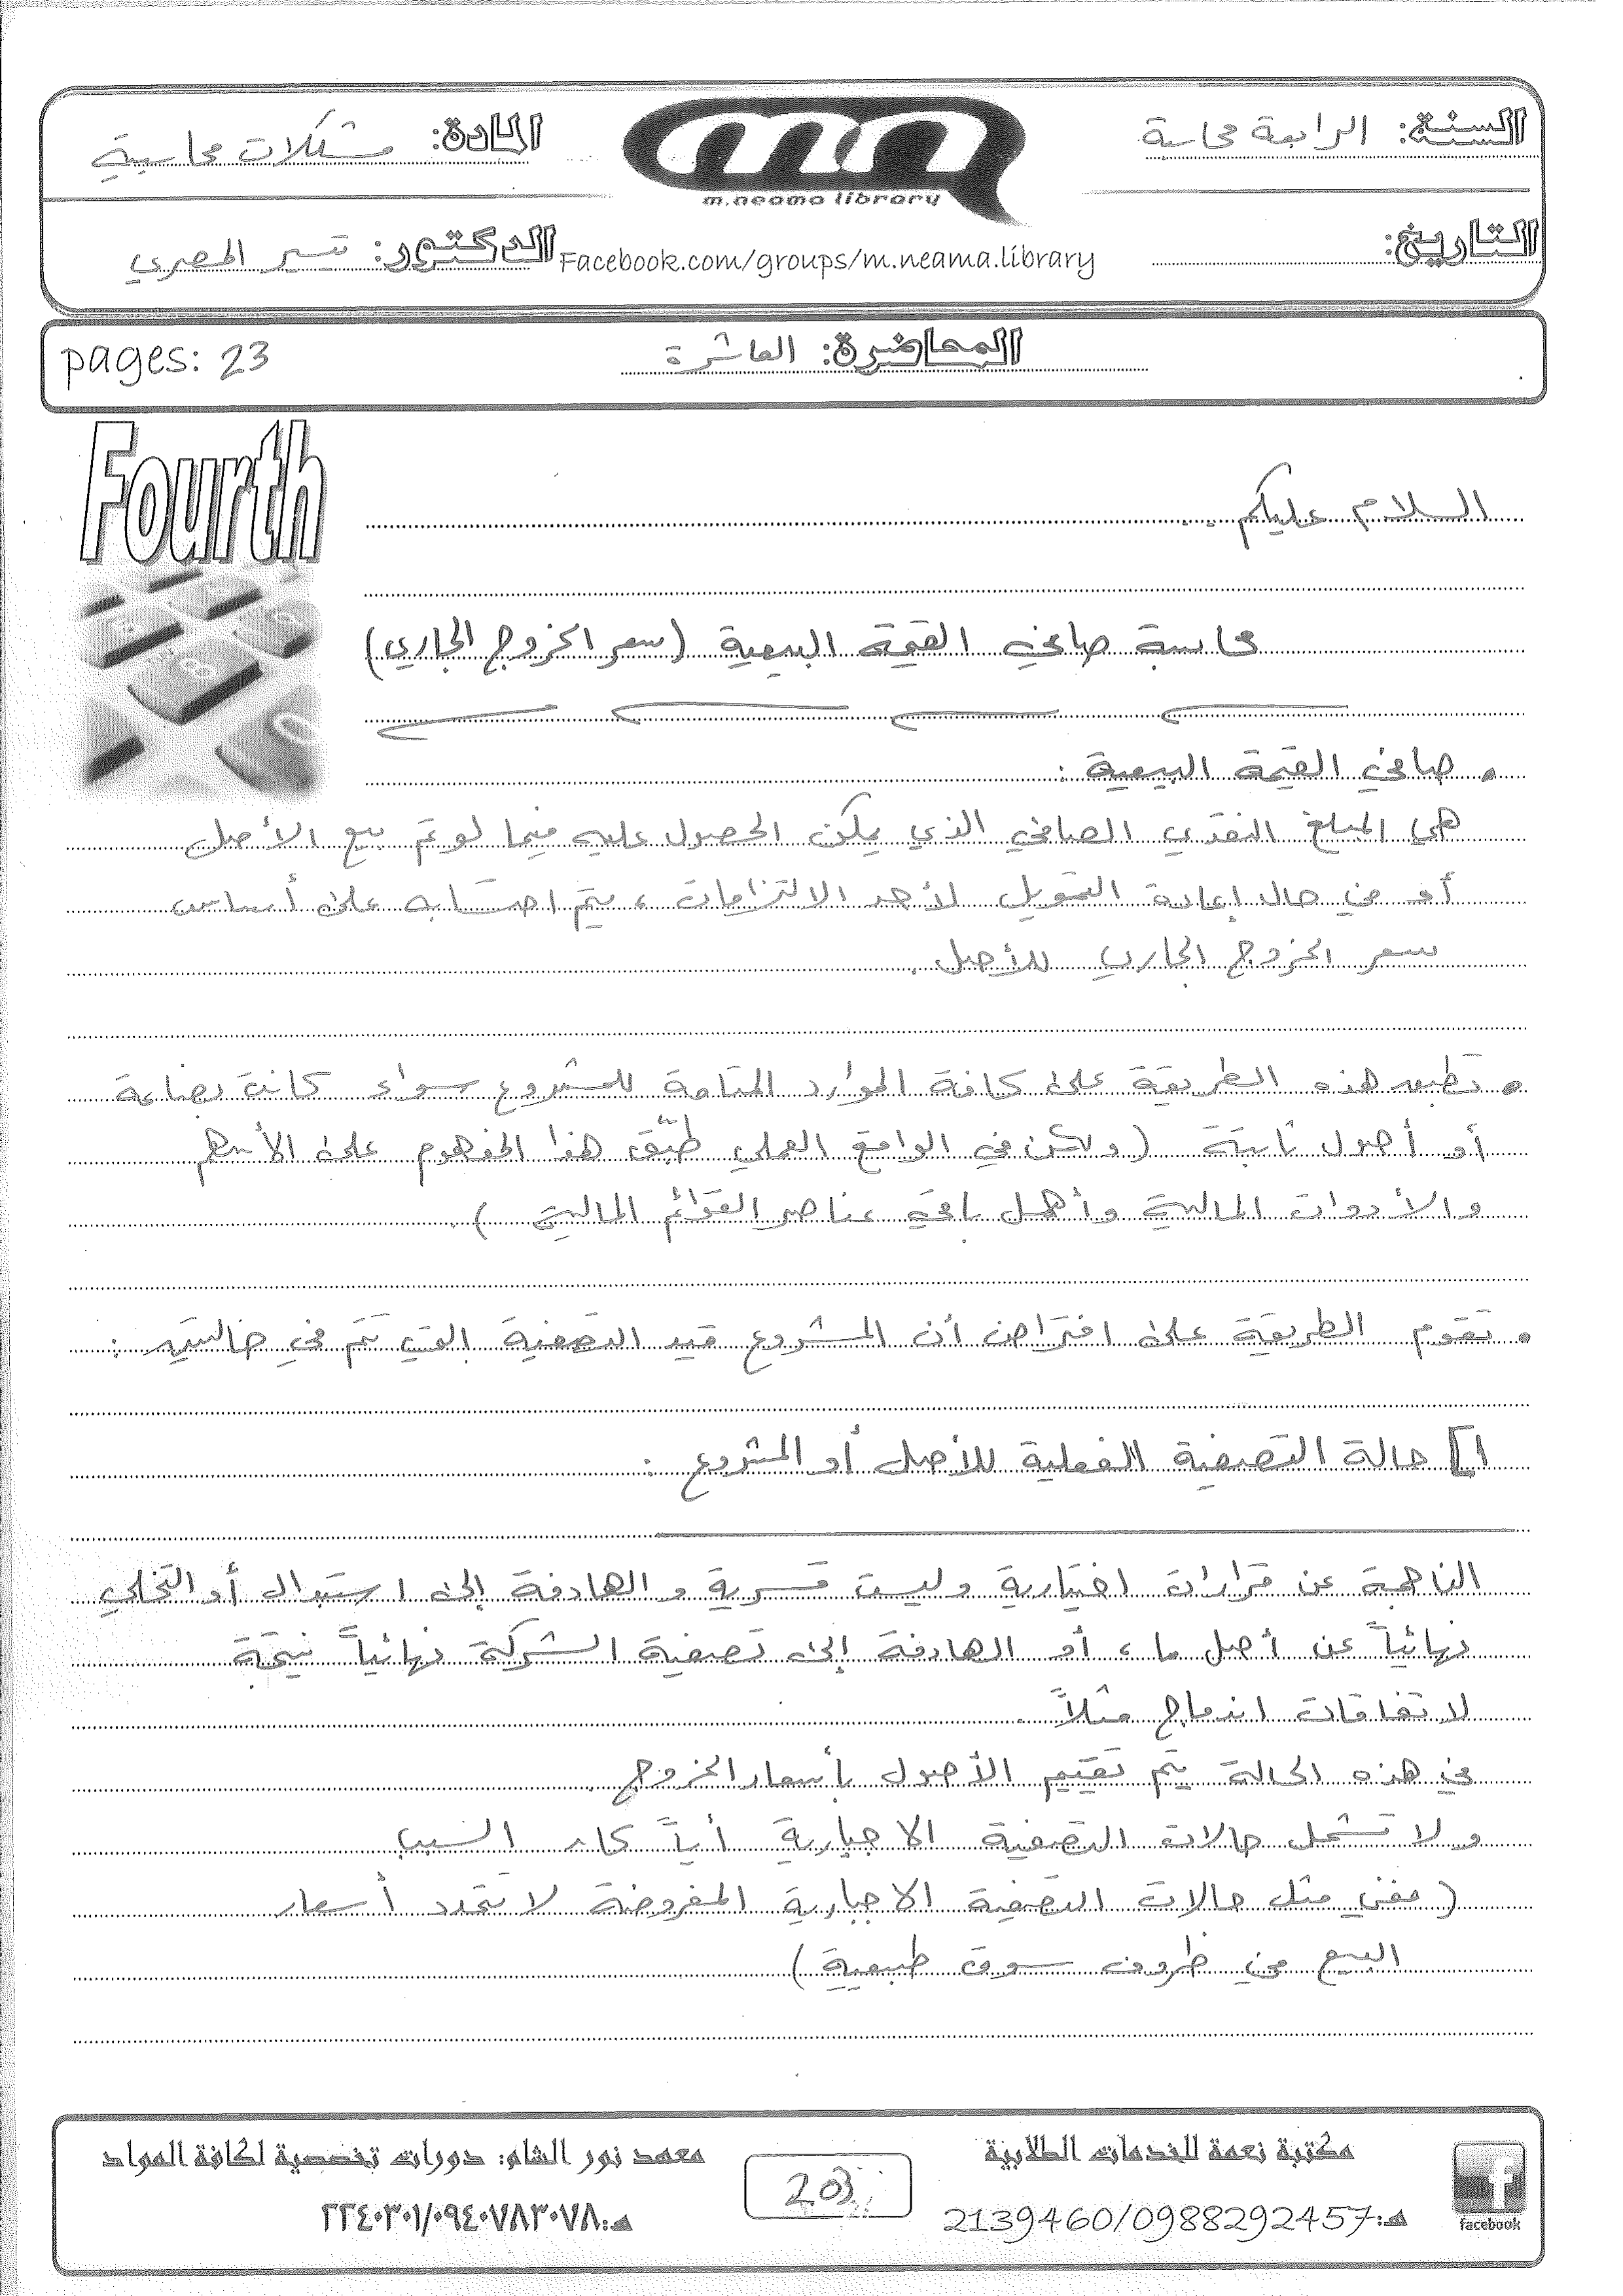 السنة: الرابعة محاسبة
المادة: مشكلات محاسبية
m.neama library
التاريخ:
Facebook.com/groups/m.neama.library
الدكتور: تيسير المصري
المحاضرة: العاشرة
pages: 23
Fourth
السلام عليكم ..
محاسبة صافي القيمة البيعية (سعر الخروج الجاري)
• صافي القيمة البيعية :
هي المبلغ النقدي الصافي الذي يمكن الحصول عليه فيما لو تم بيع الأصل
أو في حال إعادة التمويل لأحد الالتزامات ، يتم احتسابه على أساس
سعر الخروج الجاري للأصل .
• تطبق هذه الطريقة على كافة الموارد المتاحة للمشروع سواء كانت بضاعة
أو أصول ثابتة (ولكن في الواقع العملي طبّق هذا المفهوم على الأسهم
والأدوات المالية وأهمل باقي عناصر القوائم المالية ) .
• تقوم الطريقة على افتراض أن المشروع قيد التصفية التي تتم في حالتين :
1] حالة التصفية الفعلية للأصل أو المشروع :
الناجمة عن قرارات اختيارية وليست قسرية والهادفة إلى استبدال أو التخلي
نهائياً عن أصل ما ، أو الهادفة إلى تصفية الشركة نهائياً نتيجة
لاتفاقات اندماج مثلاً .
في هذه الحالة يتم تقييم الأصول بأسعار الخروج .
ولا تشمل حالات التصفية الاجبارية أياً كان السبب
(ففي مثل حالات التصفية الاجبارية المفروضة لا تتحدد أسعار
البيع في ظروف سوق طبيعية )
مكتبة نعمة للخدمات الطلابية
هـ: 2139460/0988292457
facebook
203
معهد نور الشام: دورات تخصصية لكافة المواد
هـ: ٢٢٤٠٣٠١/٠٩٤٠٧٨٣٠٧٨